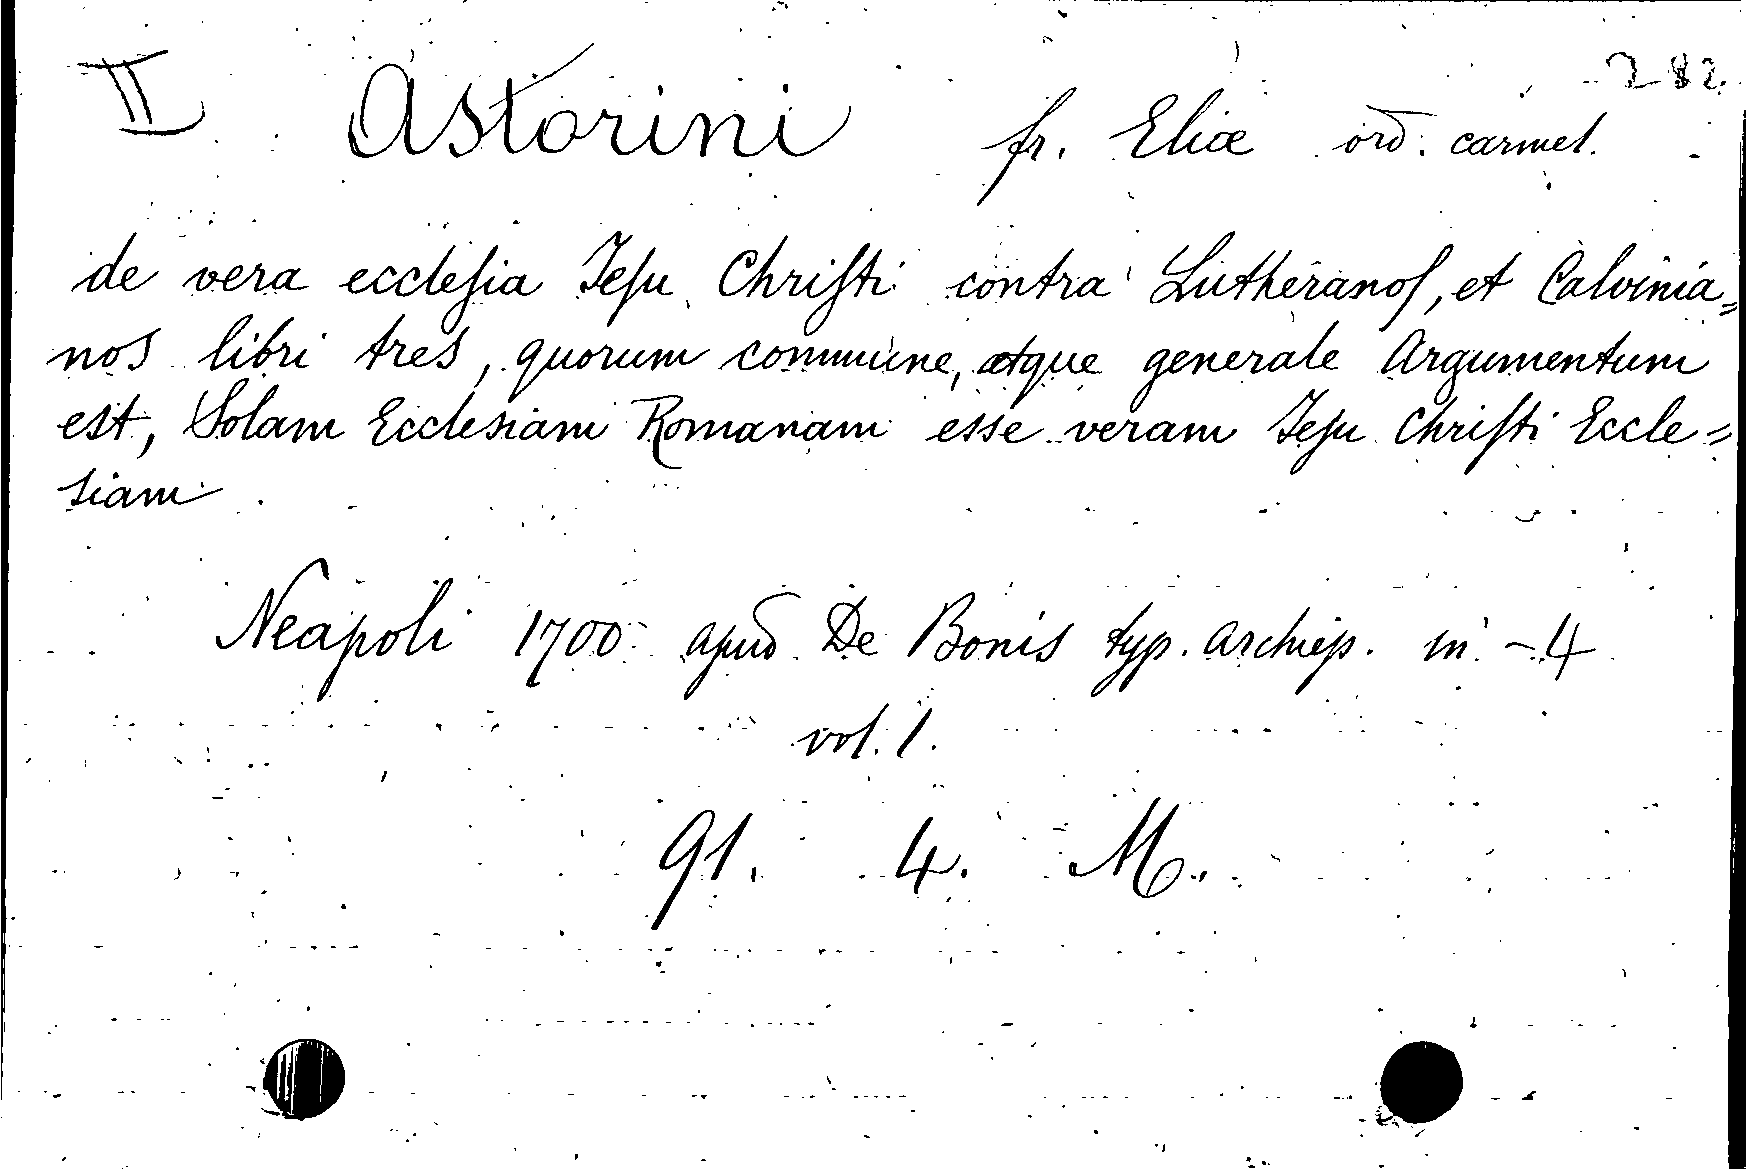 II Astorini fr. Eliæ ord. carmel. 282.
de vera ecclesia Jesu Christi contra Lutheranos, et Calvinia=
nos libri tres, quorum commune, atque generale Argumentum
est, Solam Ecclesiam Romanam esse veram Jesu Christi Eccle=
siam.
Neapoli 1700 apud De Bonis typ. archiep. in-4
vol. 1.
91. 4. M.